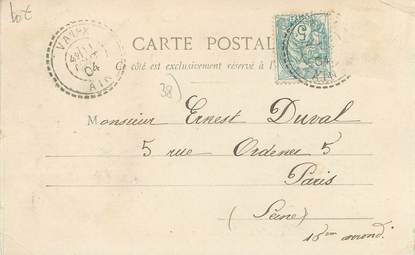 lot
CARTE POSTAL
Ce côté est exclusivement réservé à l'
04
AIN
5
04
AIN
38)
Monsieur Ernest Duval
5 rue Ordener 5
Paris
(Seine)
arrond.